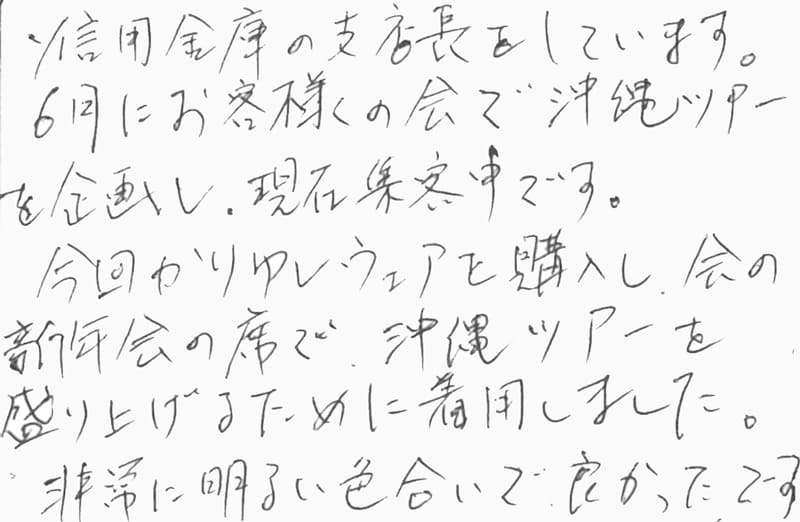 信用金庫の支店長をしています。
6月にお客様の会で沖縄ツアー
を企画し、現在集客中です。
今回かりゆしウェアを購入し、会の
新年会の席で、沖縄ツアーを
盛り上げるために着用しました。
非常に明るい色合いで良かったです